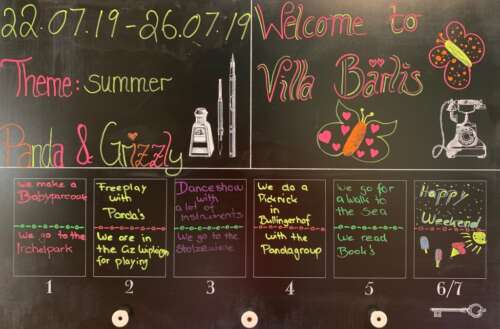 22.07.19-26.07.19
Theme: summer
Panda & Grizzly
Welcome to
Villa Bärlis
We make a
Babyparcours
We go to the
Irchelpark
1
Freeplay
with
Panda's
We are in
the Gz Wipkigen
for playing
2
Danceshow
with
a lot of
Instruments
We go to the
Stolzewiese
3
We do a
Picknick
in
Bullingerhof
with the
Pandagroup
4
We go for
a walk to
the Sea
We read
Book's
5
Happy
Weekend
6/7